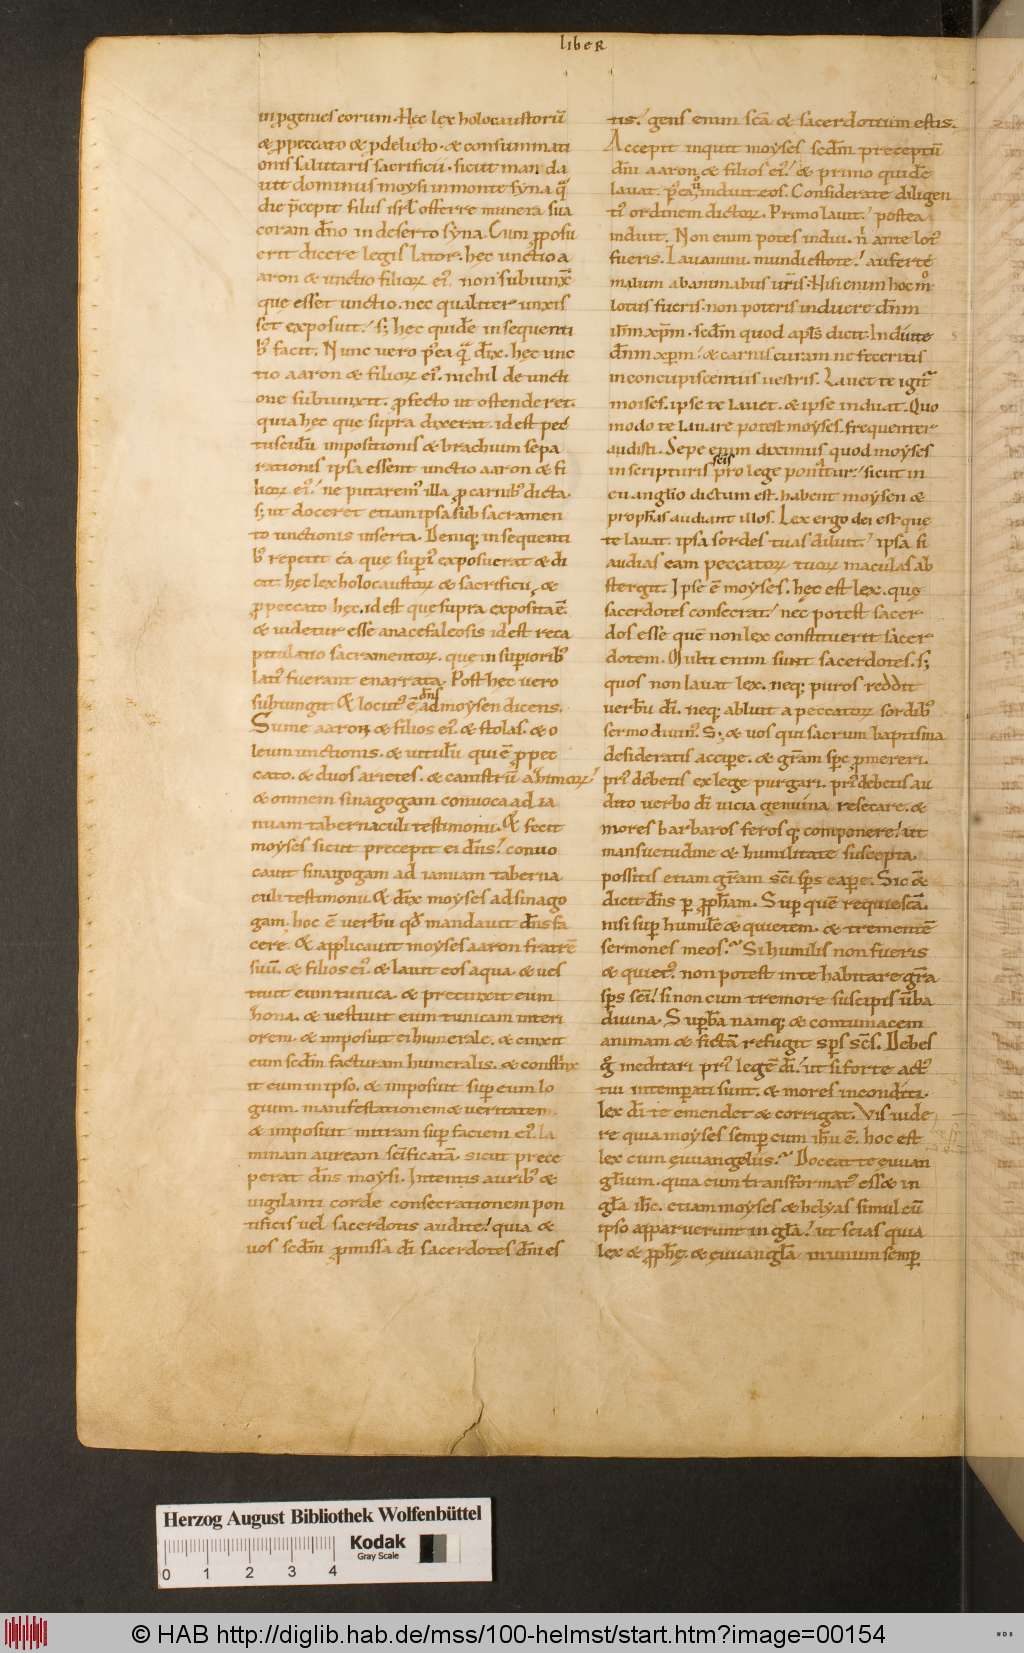 liber
in p̄genies eorum. Hęc lex holocaustorū
& p̄ peccato & p̄ delicto. & consummati
onis salutaris sacrificii. sicut man da
uit dominus moysi in monte syna q̄
die p̄cepit filiis isrł offerre munera sua
coram dn̄o in deserto syna. Cum p̄posu
erit dicere legis lator. hęc unctio a
aron & unctio filioꝝ ei᾿. non subiunx̄
que esset unctio. nec qualiter unxis
set exposuit. s; hęc quidē in sequenti
b᾿ facit. Nunc uero p̄ ea q̄ dix̄. hęc unc
tio aaron & filioꝝ ei᾿. nichil de uncti
one subiunxit. p̄fecto ut ostenderet.
quia hęc que supra dixerat. id est pec
tusculū impositionis & brachium sepa
rationis ipsa essent unctio aaron & fi
lioꝝ ei᾿. ne putarem᾿ illa p̄ carnib᾿ dicta.
s; ut doceret etiam ipsa sub sacramen
to unctionis inserta. Deniq; in sequenti
b᾿ repetit ea quę sup᾿i᾿ exposuerat & di
cit. hęc lex holocaustoꝝ & sacrificii. &
p̄ peccato hęc. id est que supra exposita ē.
& uidetur esse anacefaleosis id est reca
pitulatio sacramentoꝝ. que in superiorib᾿
lati᾿ fuerant enarrata. Post hęc uero
subiungit & locut᾿ ē dn̄s ad moysen dicens.
Sume aaron & filios ei᾿. & stolas. & o
leum unctionis. & uitulū qui ē p̄ pec
cato. & duos arietes. & canistrū azimoꝝ.
& omnem sinagogam conuoca ad ia
nuam tabernaculi testimonii. & fecit
moyses sicut precepit ei dn̄s. conuo
cauit sinagogam ad ianuam taberna
culi testimonii. & dix̄ moyses ad sinago
gam. hoc ē uerbū qđ mandauit dn̄s fa
cere. & applicauit moyses aaron fratrē
suū. & filios ei᾿. & lauit eos aqua. & ues
tiuit eum tunica. & precinxit eum
zona. & uestiuit eum tunicam interi
orem. & imposuit ei humerale. & cinxit
eum sc̄dm facturam humeralis. & constrinx
it eum in ipso. & imposuit sup̄ eum lo
gium. manifestationem & ueritatem.
& imposuit mitram sup̄ faciem ei᾿. la
minam auream sc̄ificatā. sicut prece
perat dn̄s moysi. Intentis aurib᾿ &
uigilanti corde consecrationem pon
tificis uel sacerdotis audite. quia &
uos sc̄dm p̄missa dī sacerdotes dn̄i es
tis. gens enim sc̄a & sacerdotium estis.
Accepit inquit moyses sc̄dm preceptū
dn̄i aaron & filios ei᾿. & primo quidē
lauat. p᾿ea induit eos. Considerate diligen
ti᾿ ordinem dictoꝝ. Primo lauit. postea
induit. Non enim potes indui. n᾿ ante lot᾿
fueris. Lauamini. mundi estote. auferte
malum ab animabus ūris. Nisi enim hoc m᾿o
lotus fueris. non poteris induere dn̄m
ih̄m xp̄m. sc̄dm quod apl̄s dicit. Induite
dn̄m xp̄m. & carnis curam ne feceritis
in concupiscentiis uestris. Lauet te igit᾿
moises. ipse te lauet. & ipse induat. Quo
modo te lauare potest moyses. frequenter
audisti. Sepe enim diximus quod moyses
in scripturis sc̄is pro lege ponitur. sicut in
euanglio dictum est. habent moysen &
prophas audiant illos. Lex ergo dei est que
te lauat. ipsa sordes tuas diluit. ipsa si
audias eam peccatoꝝ tuoꝝ maculas ab
stergit. Ipse ē moyses. hęc est lex. que
sacerdotes consecrat. nec potest sacer
dos esse quē non lex constituerit sacer
dotem. Multi enim sunt sacerdotes. s;
quos non lauat lex. neq; puros reddit
uerbū dī. neq; abluit a peccatoꝝ sordib᾿
sermo diuin᾿. S; & uos qui sacrum baptisma
desideratis accipe. & gr̄am sp̄c p̄mereri.
pri᾿ debetis ex lege purgari. pri᾿ debetis au
dito uerbo dī uicia genuina resecare. &
mores barbaros feros q; componere. ut
mansuetudine & humilitate suscepta.
possitis etiam gr̄am sc̄i sp̄s cape. Sic &
dicit dn̄s p̄ p̄pham. Sup̄ quē requiescā.
nisi sup̄ humilē & quietem. & trementē
sermones meos. Si humilis non fueris
& quiet᾿. non potest in te habitare gr̄a
sp̄s sc̄i. si non cum tremore suscipis ūba
diuina. Superba namq; & contumacem
animam & fictā refugit sp̄s sc̄s. Debes
g᾿ meditari pri᾿ legē dī. ut si forte act᾿
tui intemperati sunt. & mores inconditi.
lex dī te emendet & corrigat. Vis uide
re quia moyses semper cum ih̄u ē. hoc est
lex cum euuangeliis. Doceat te euuan
glium. quia cum transformat᾿ esset in
gl̄a ih̄c. etiam moyses & helyas simul cū
ipso apparuerunt in gl̄a. ut scias quia
lex & p̄phę. & euuangl̄a in unum semp̄
Herzog August Bibliothek Wolfenbüttel
Kodak
Gray Scale
0 1 2 3 4
© HAB http://diglib.hab.de/mss/100-helmst/start.htm?image=00154